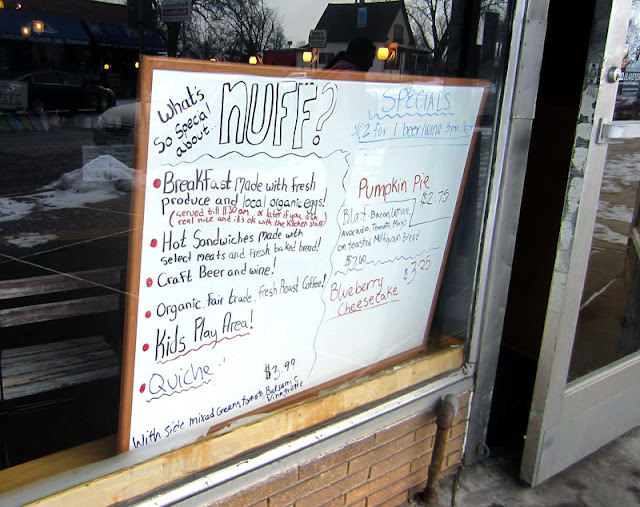 What's
So Special
about...
NUFF?
• BreakFast made with fresh
produce and local organic eggs!
(served till 11:30am or later if you ask
real nice and it's ok with the kitchen staff)
• Hot Sandwiches made with
select meats and fresh baked bread!
• Craft Beer and wine!
• Organic Fair trade, Fresh Roast Coffee!
• Kids Play Area!
• Quiche
$3.99
With side mixed Greens, Balsamic
Vinegrette
SPECIALS
2 for 1 beer/wine
Pumpkin Pie
$2.75
Blat - Bacon, Lettuce,
Avocado, Tomato, Mayo
on toasted Multigrain Bread
Blueberry
Cheesecake
$3.25